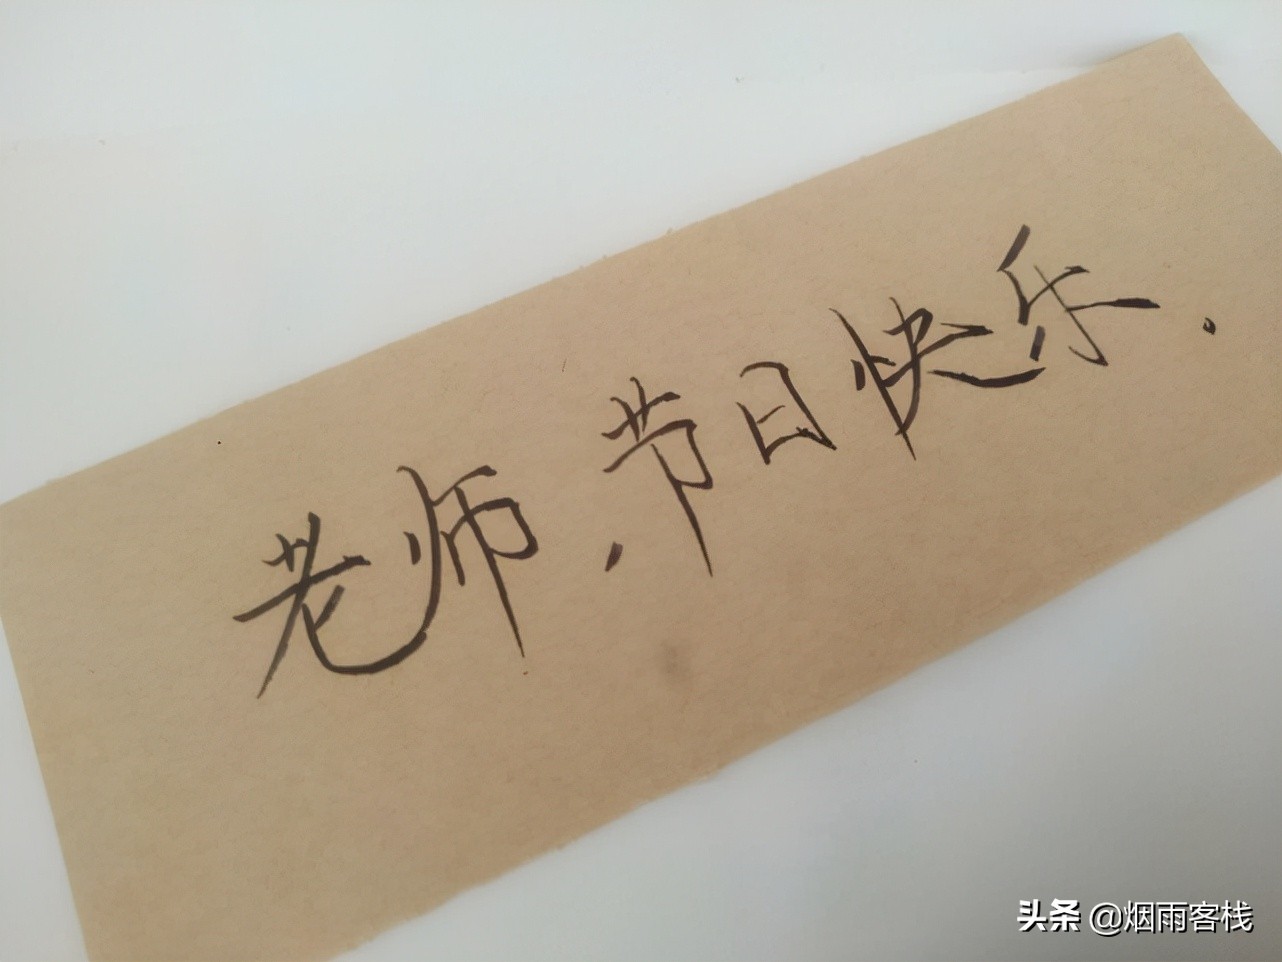 老师,节日快乐.
头条 @烟雨客栈